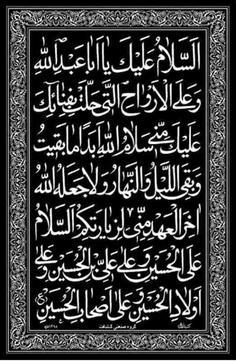 اَلسَّلامُ عَلَيْكَ يا اَباعَبْدِاللهِ
وَعَلَى الْاَرْواحِ الَّتى حَلَّتْ بِفِنائِكَ
عَلَيْكَ مِنّى سَلامُ اللهِ اَبَداً ما بَقيتُ
وَبَقِىَ اللَّيْلُ وَالنَّهارُ وَلاجَعَلَهُ اللهُ
اخِرَ الْعَهْدِ مِنّى لِزِيارَتِكُمْ اَلسَّلامُ
عَلَى الْحُسَيْنِ وَعَلى عَلِىِّ بْنِ الْحُسَيْنِ وَعَلى
اَوْلادِ الْحُسَيْنِ وَعَلى اَصْحابِ الْحُسَيْنِ